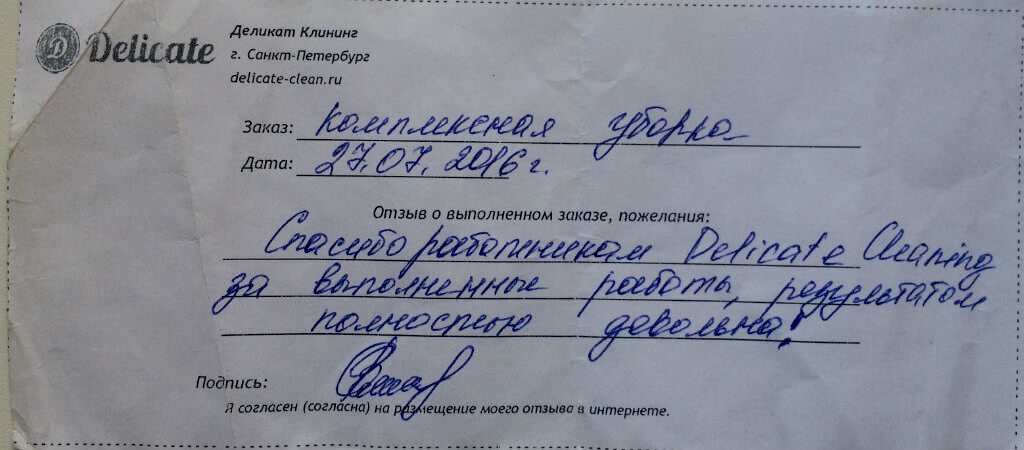 Delicate
Деликат Клининг
г. Санкт-Петербург
delicate-clean.ru
Заказ: комплексная уборка
Дата: 27.07.2016 г.
Отзыв о выполненном заказе, пожелания:
Спасибо работникам Delicate Cleaning
за выполненные работы, результатом
полностью довольна!
Подпись:
Я согласен (согласна) на размещение моего отзыва в интернете.